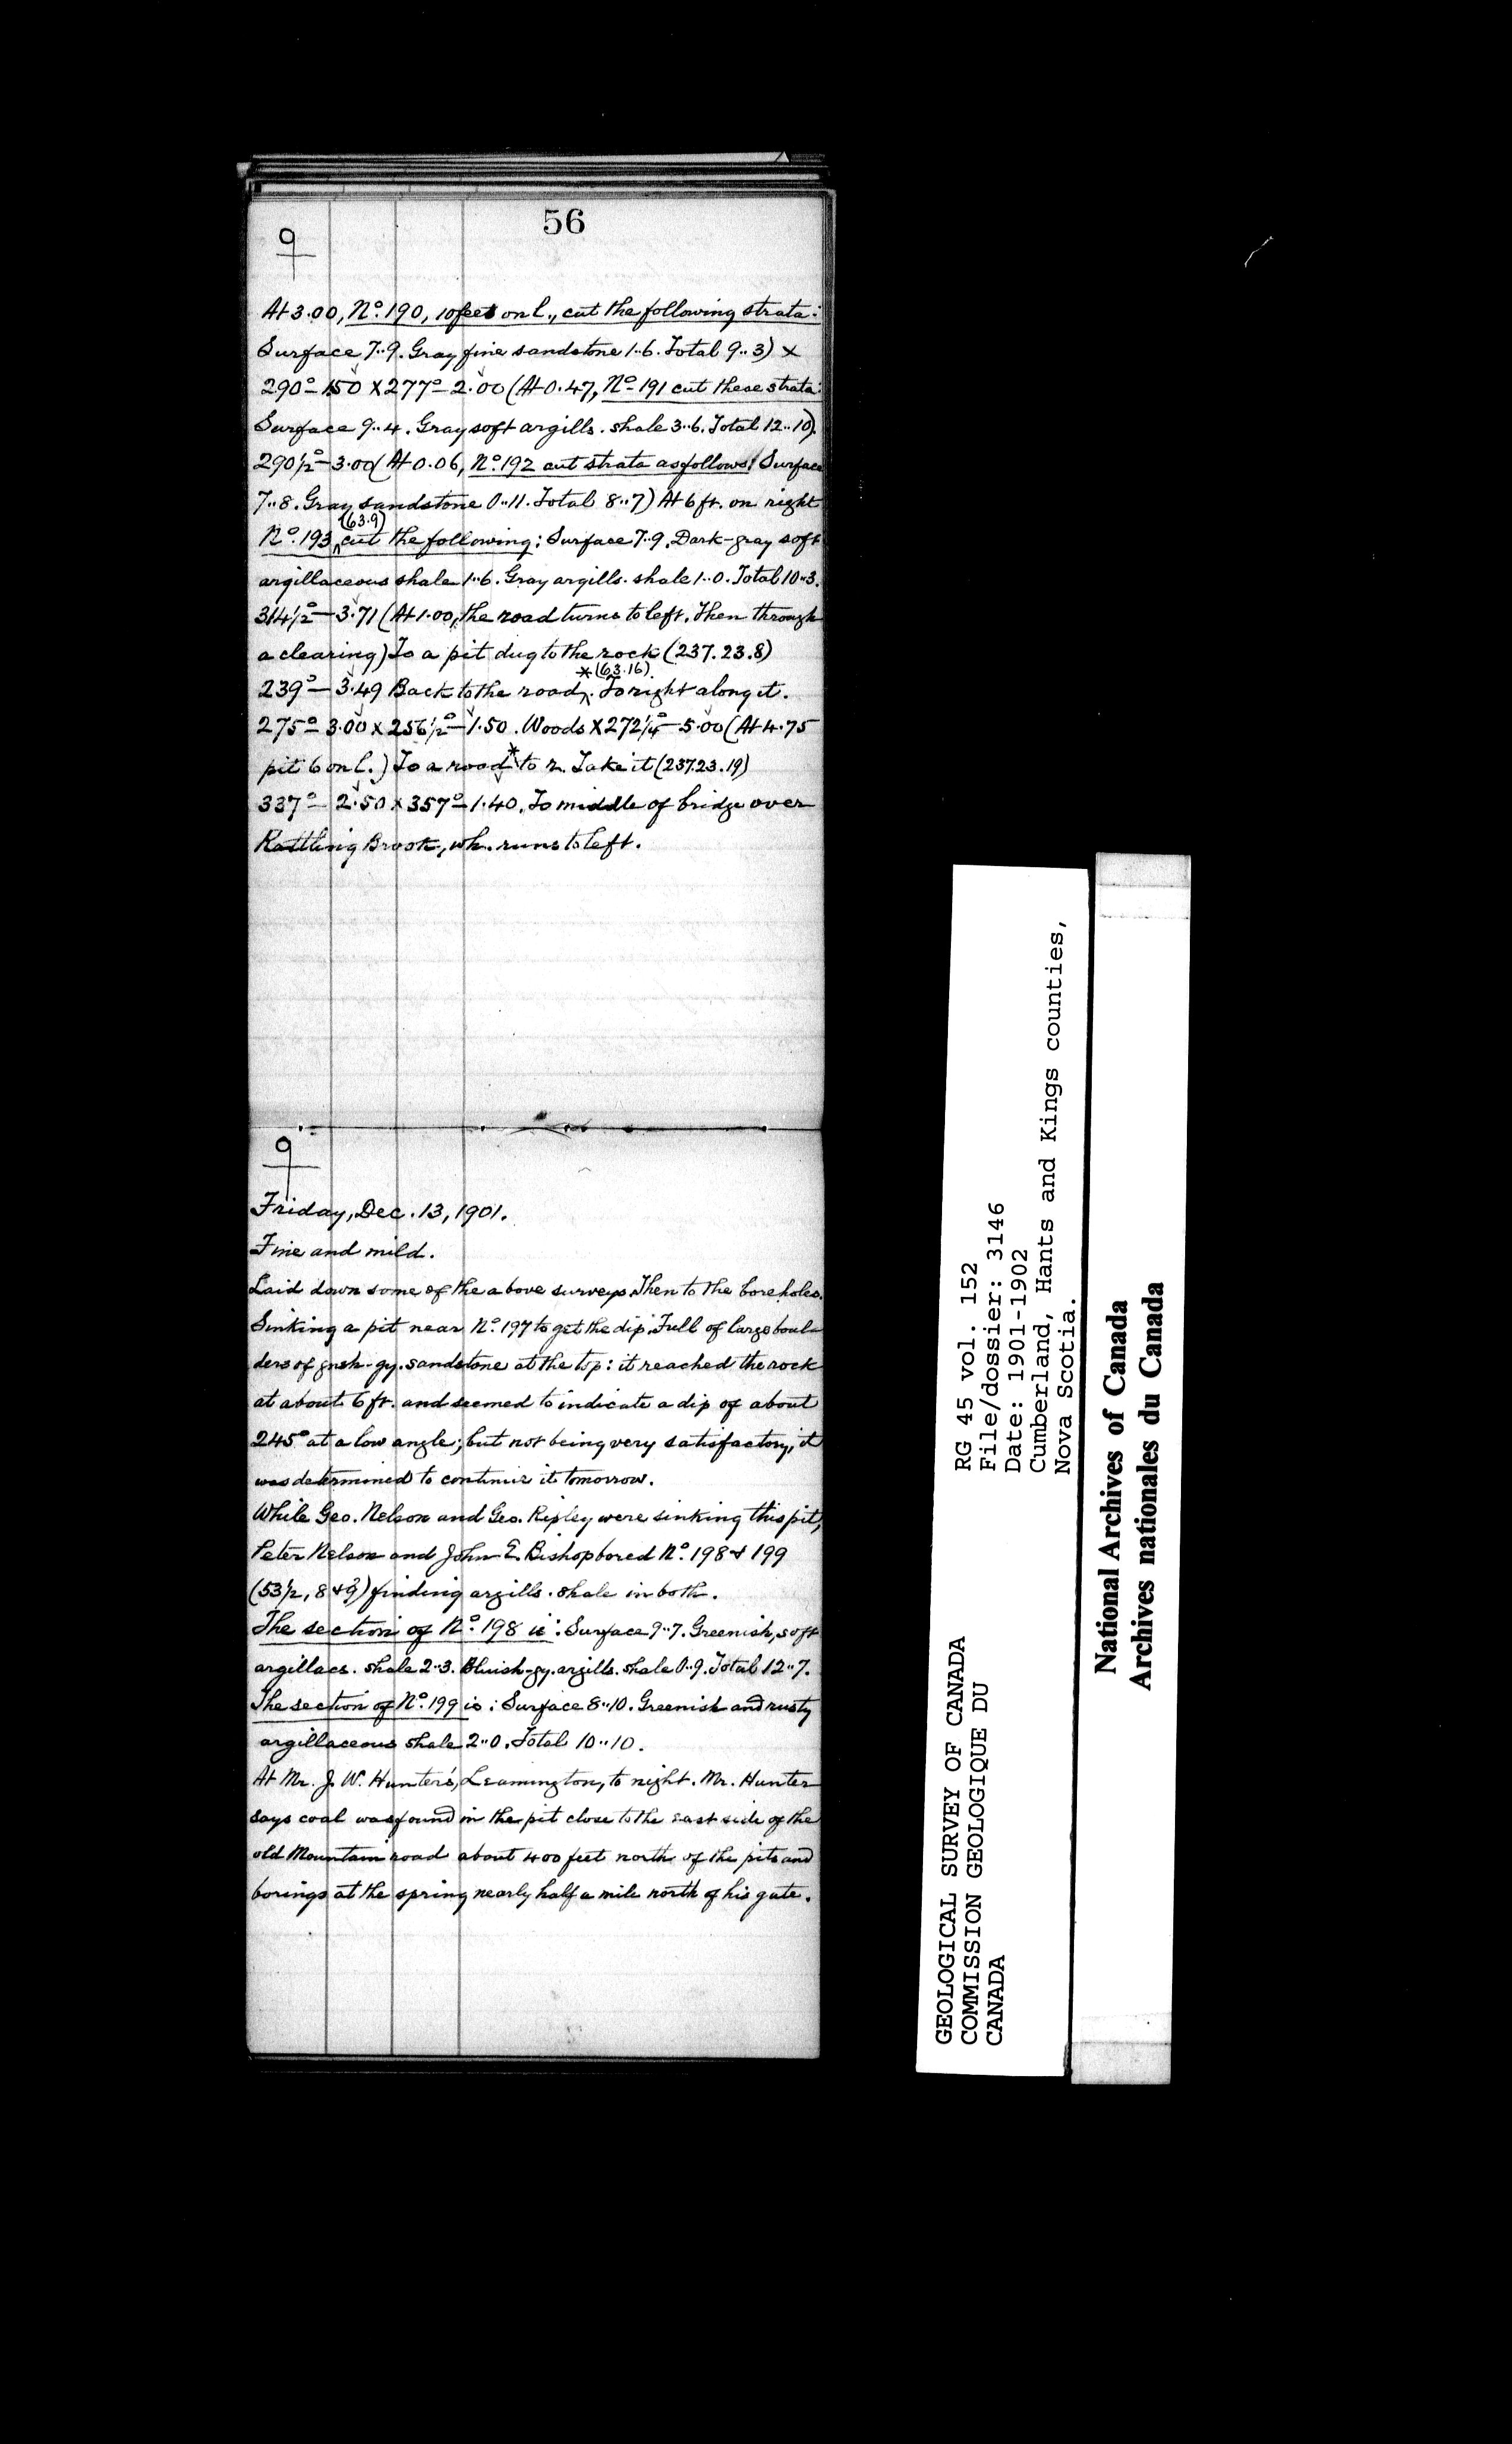 56
9
At 3.00, No. 190, 10 feet on l., cut the following strata:
Surface 7..9. Gray fine sandstone 1..6. Total 9..3) ×
290° – 1.50 × 277° – 2.00 (At 0.47, No. 191 cut these strata:
Surface 9..4. Gray soft argills. shale 3..6. Total 12..10).
290½° – 3.00 (At 0.06, No. 192 cut strata as follows: Surface
7..8. Gray sandstone 0..11. Total 8..7) At 6 ft. on right
(63.9)
No. 193 ^ cut the following: Surface 7..9. Dark-gray soft
argillaceous shale 1..6. Gray argills. shale 1..0. Total 10..3.
314½° – 3.71 (At 1.00, the road turns to left. Then through
a clearing) To a pit dug to the rock (237.23.8)
* (63.16).
239° – 3.49 Back to the road ^. To right along it.
275° – 3.00 × 256½° – 1.50. Woods × 272¼° – 5.00 (At 4.75
pit 6 on l.) To a road * to r. Take it (237.23.19)
337° – 2.50 × 357° – 1.40. To middle of bridge over
Rattling Brook, wh. runs to left.
9
Friday, Dec. 13, 1901.
Fine and mild.
Laid down some of the above surveys. Then to the boreholes.
Sinking a pit near No. 197 to get the dip. Full of large boul-
ders of gnsh-gy. sandstone at the top: it reached the rock
at about 6 ft. and seemed to indicate a dip of about
245° at a low angle; but not being very satisfactory, it
was determined to continue it tomorrow.
While Geo. Nelson and Geo. Ripley were sinking this pit,
Peter Nelson and John E. Bishop bored No. 198 & 199
(53½, 8 & 9) finding argills. shale in both.
The section of No. 198 is: Surface 9..7. Greenish, soft
argillacs. shale 2..3. Bluish-gy. argills. shale 0..9. Total 12..7.
The section of No. 199 is: Surface 8..10. Greenish and rusty
argillaceous shale 2..0. Total 10..10.
At Mr. J. W. Hunter's, Leamington, to night. Mr. Hunter
says coal was found in the pit close to the east side of the
old Mountain road about 400 feet north of the pits and
borings at the spring nearly half a mile north of his gate.
GEOLOGICAL SURVEY OF CANADA
COMMISSION GEOLOGIQUE DU
CANADA
RG 45 vol. 152
File/dossier: 3146
Date: 1901-1902
Cumberland, Hants and Kings counties,
Nova Scotia.
National Archives of Canada
Archives nationales du Canada